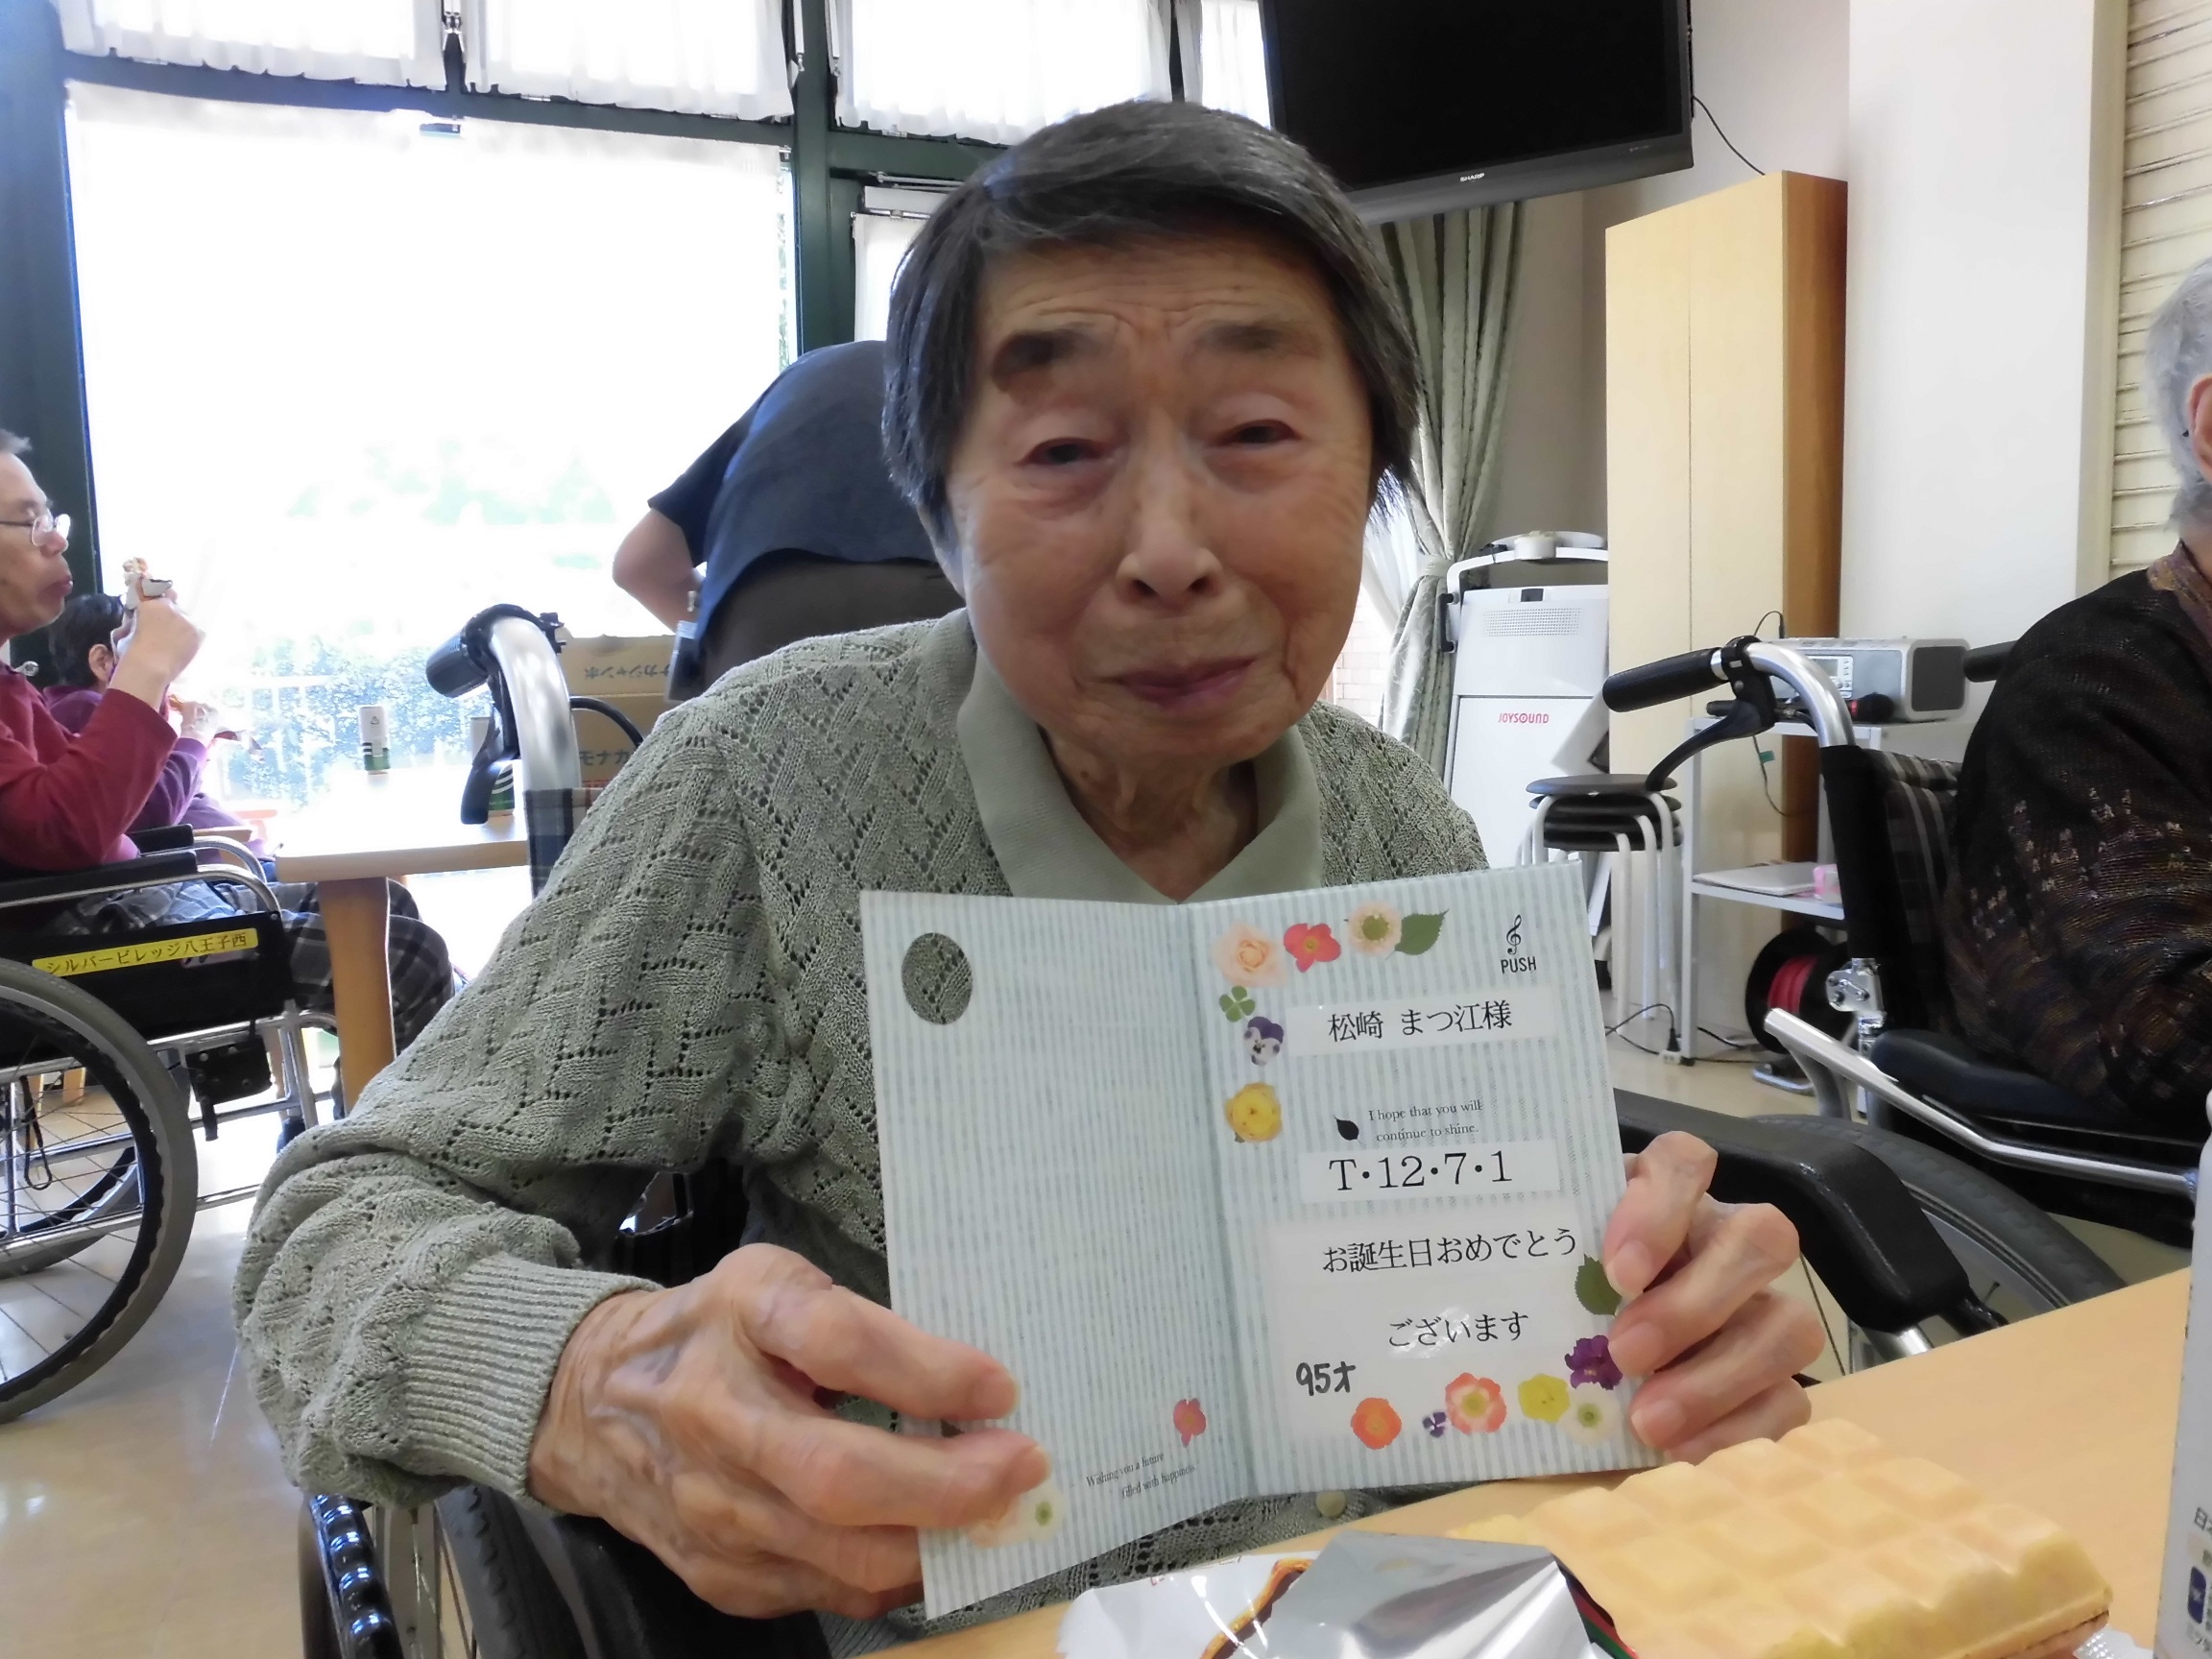 SHARP
JOYSOUND
シルバービレッジ八王子西
モナカ
PUSH
松崎 まつ江様
I hope that you will
continue to shine.
T・12・7・1
お誕生日おめでとう
ございます
95才
Wishing you a future
filled with happiness.